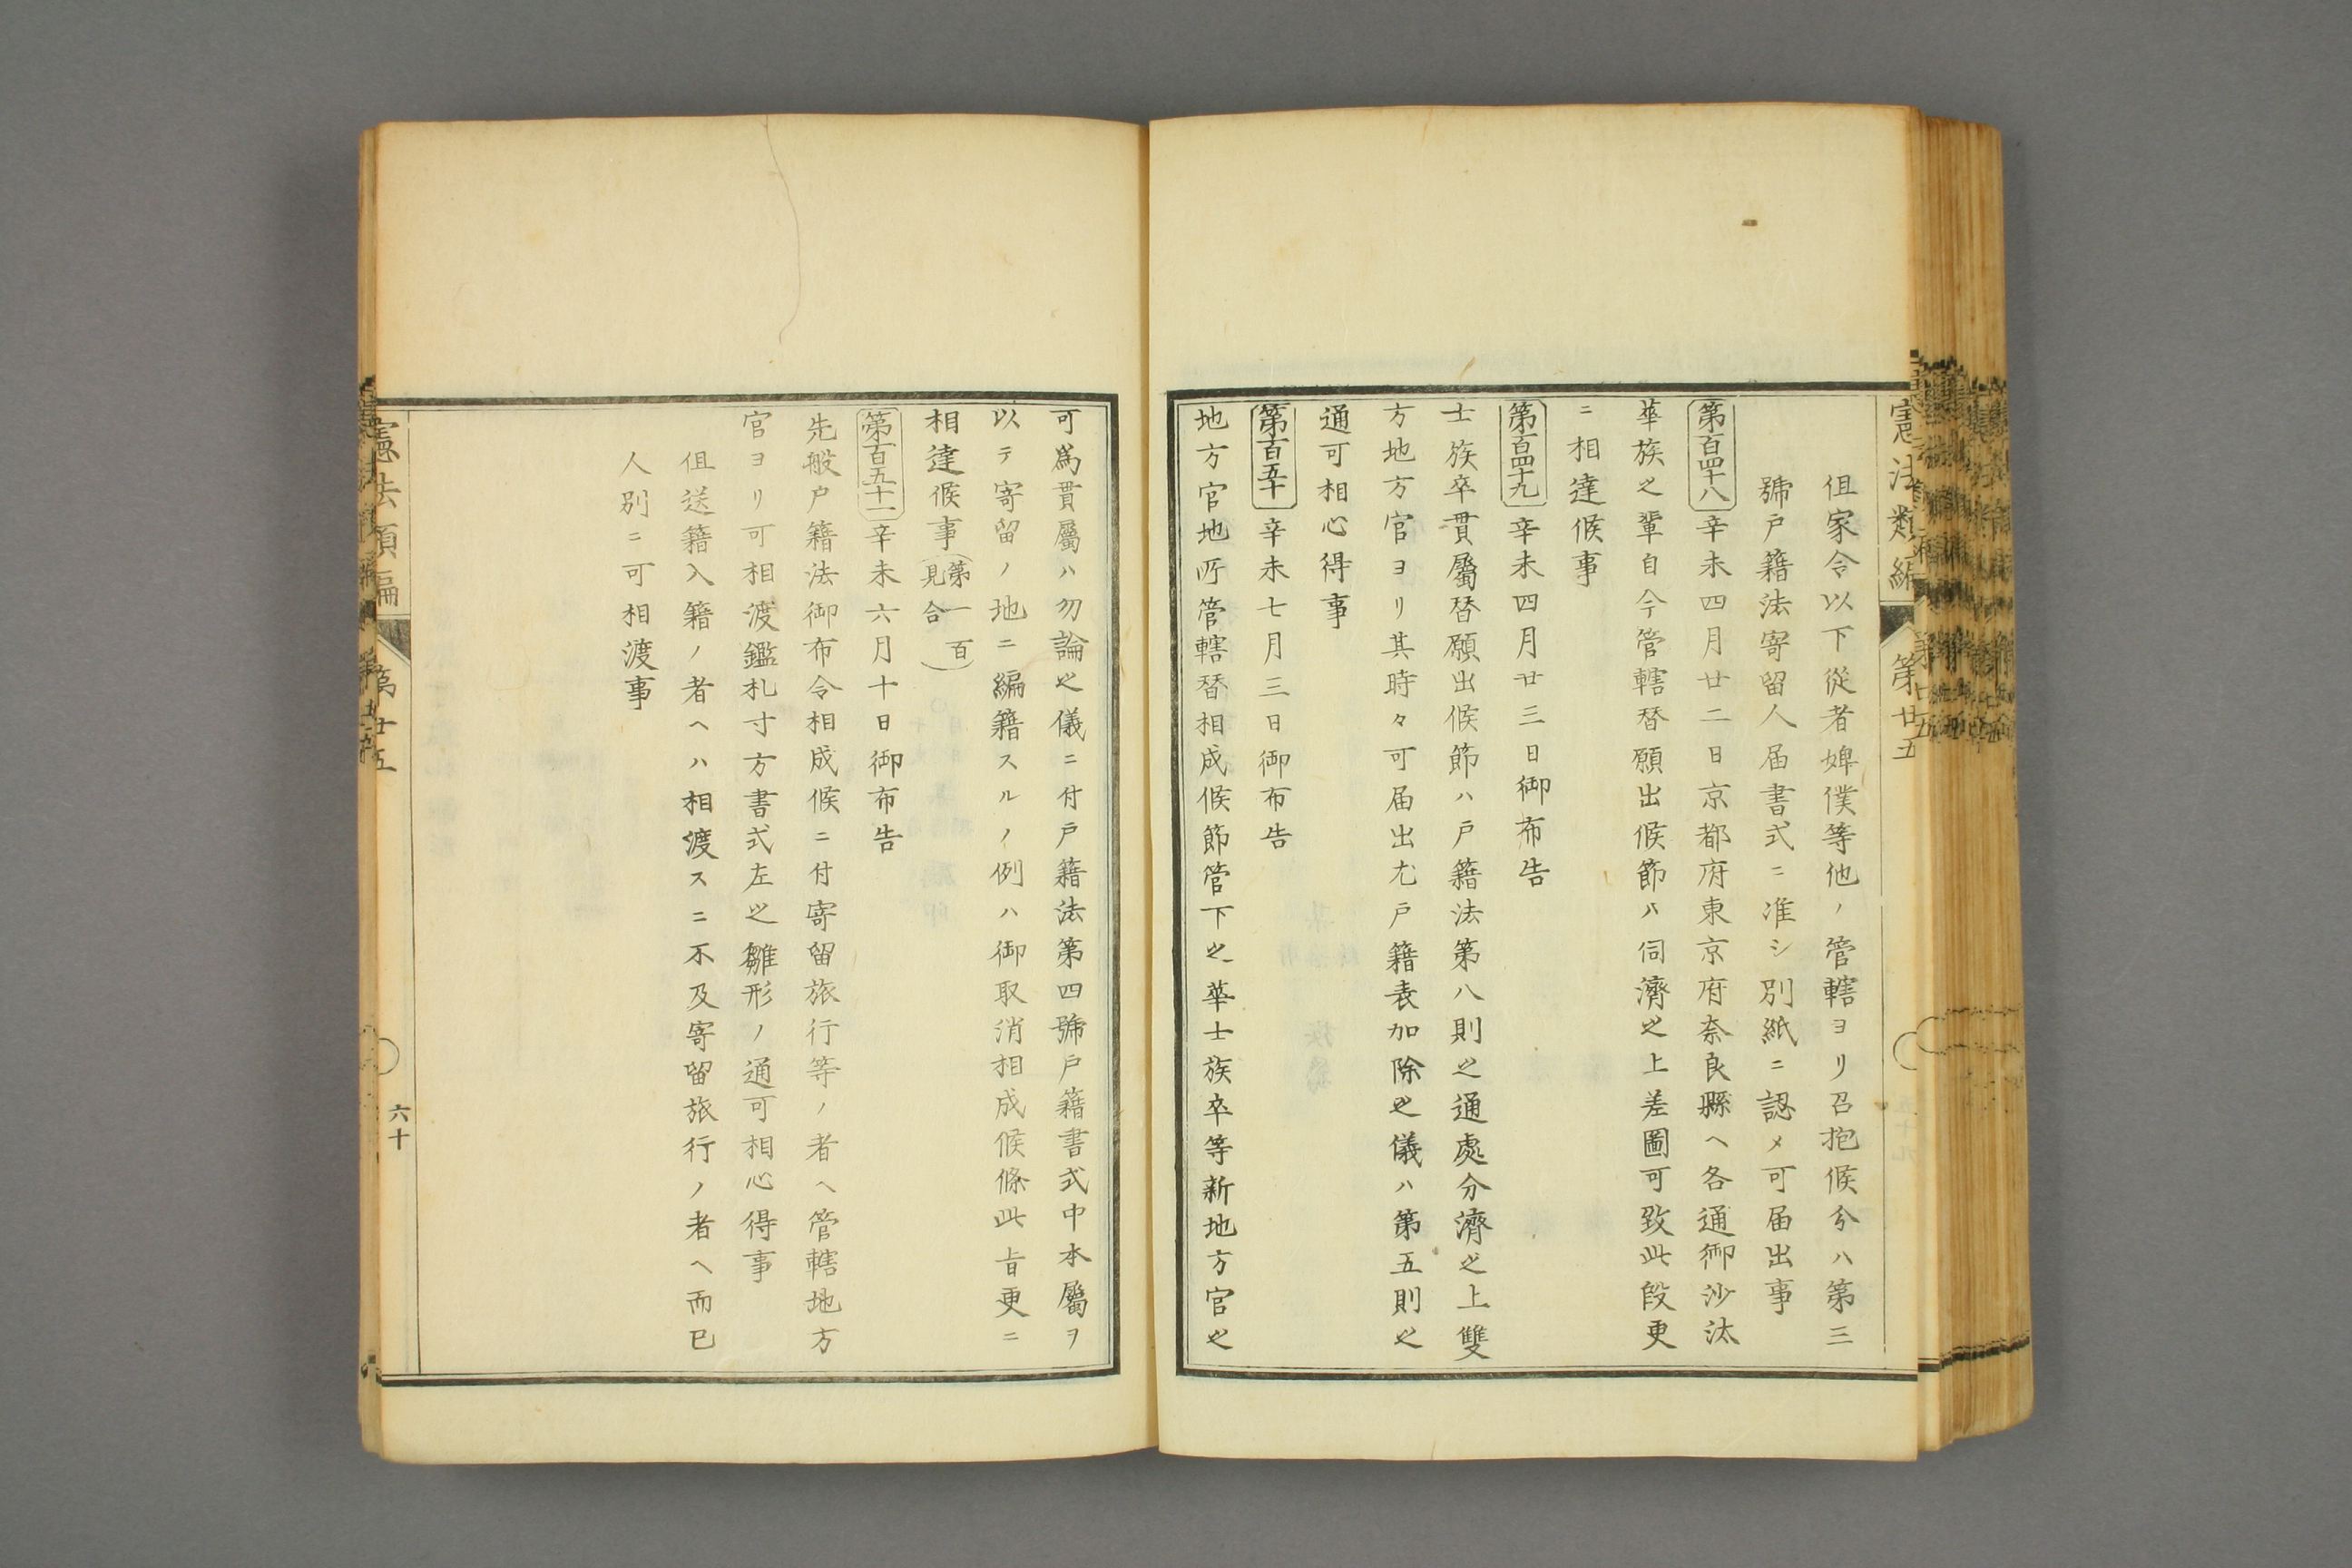 憲法類編
第廿五
伹家令以下從者婢僕等他ノ管轄ヨリ召抱候分ハ第三
號戸籍法寄留人届書式ニ准シ別紙ニ認メ可届出事
第百四十八 辛未四月廿二日京都府東京府奈良縣ヘ各通御沙汰
華族之輩自今管轄替願出候節ハ伺濟之上差圖可致此段更
ニ相達候事
第百四十九 辛未四月廿三日御布告
士族卒貫屬替願出候節ハ戸籍法第八則之通處分濟之上雙
方地方官ヨリ其時々可届出尤戸籍表加除之儀ハ第五則之
通可相心得事
第百五十 辛未七月三日御布告
地方官地所管轄替相成候節管下之華士族卒等新地方官之
可爲貫屬ハ勿論之儀ニ付戸籍法第四號戸籍書式中本屬ヲ
以テ寄留ノ地ニ編籍スルノ例ハ御取消相成候條此旨更ニ
相達候事(第一百見合)
第百五十一 辛未六月十日御布告
先般戸籍法御布令相成候ニ付寄留旅行等ノ者ヘ管轄地方
官ヨリ可相渡鑑札寸方書式左之雛形ノ通可相心得事
伹送籍入籍ノ者ヘハ相渡スニ不及寄留旅行ノ者ヘ而已
人別ニ可相渡事
憲法類編
第廿五
六十